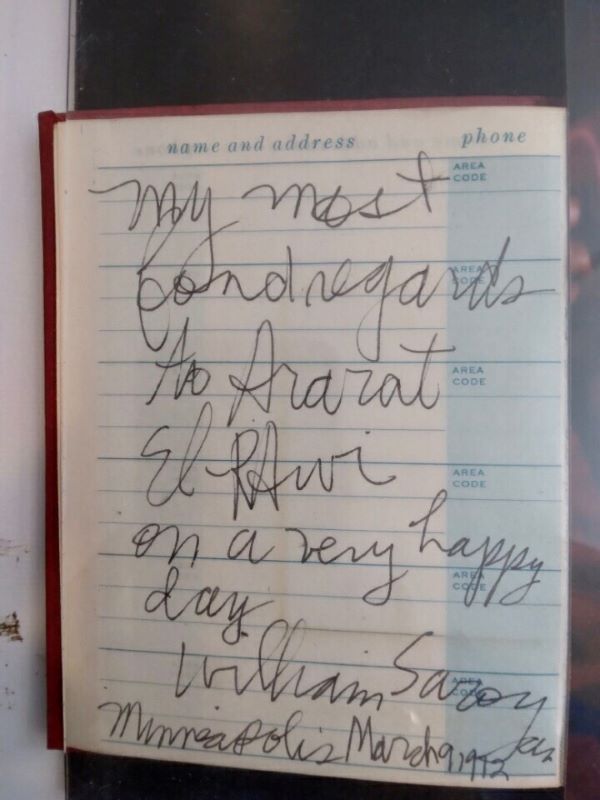 name and address phone
AREA CODE
My most
AREA CODE
fond regards
to Ararat
AREA CODE
El RAwi
AREA CODE
on a very happy
AREA CODE
day.
William Saroyan
AREA CODE
Minneapolis March 9, 1972